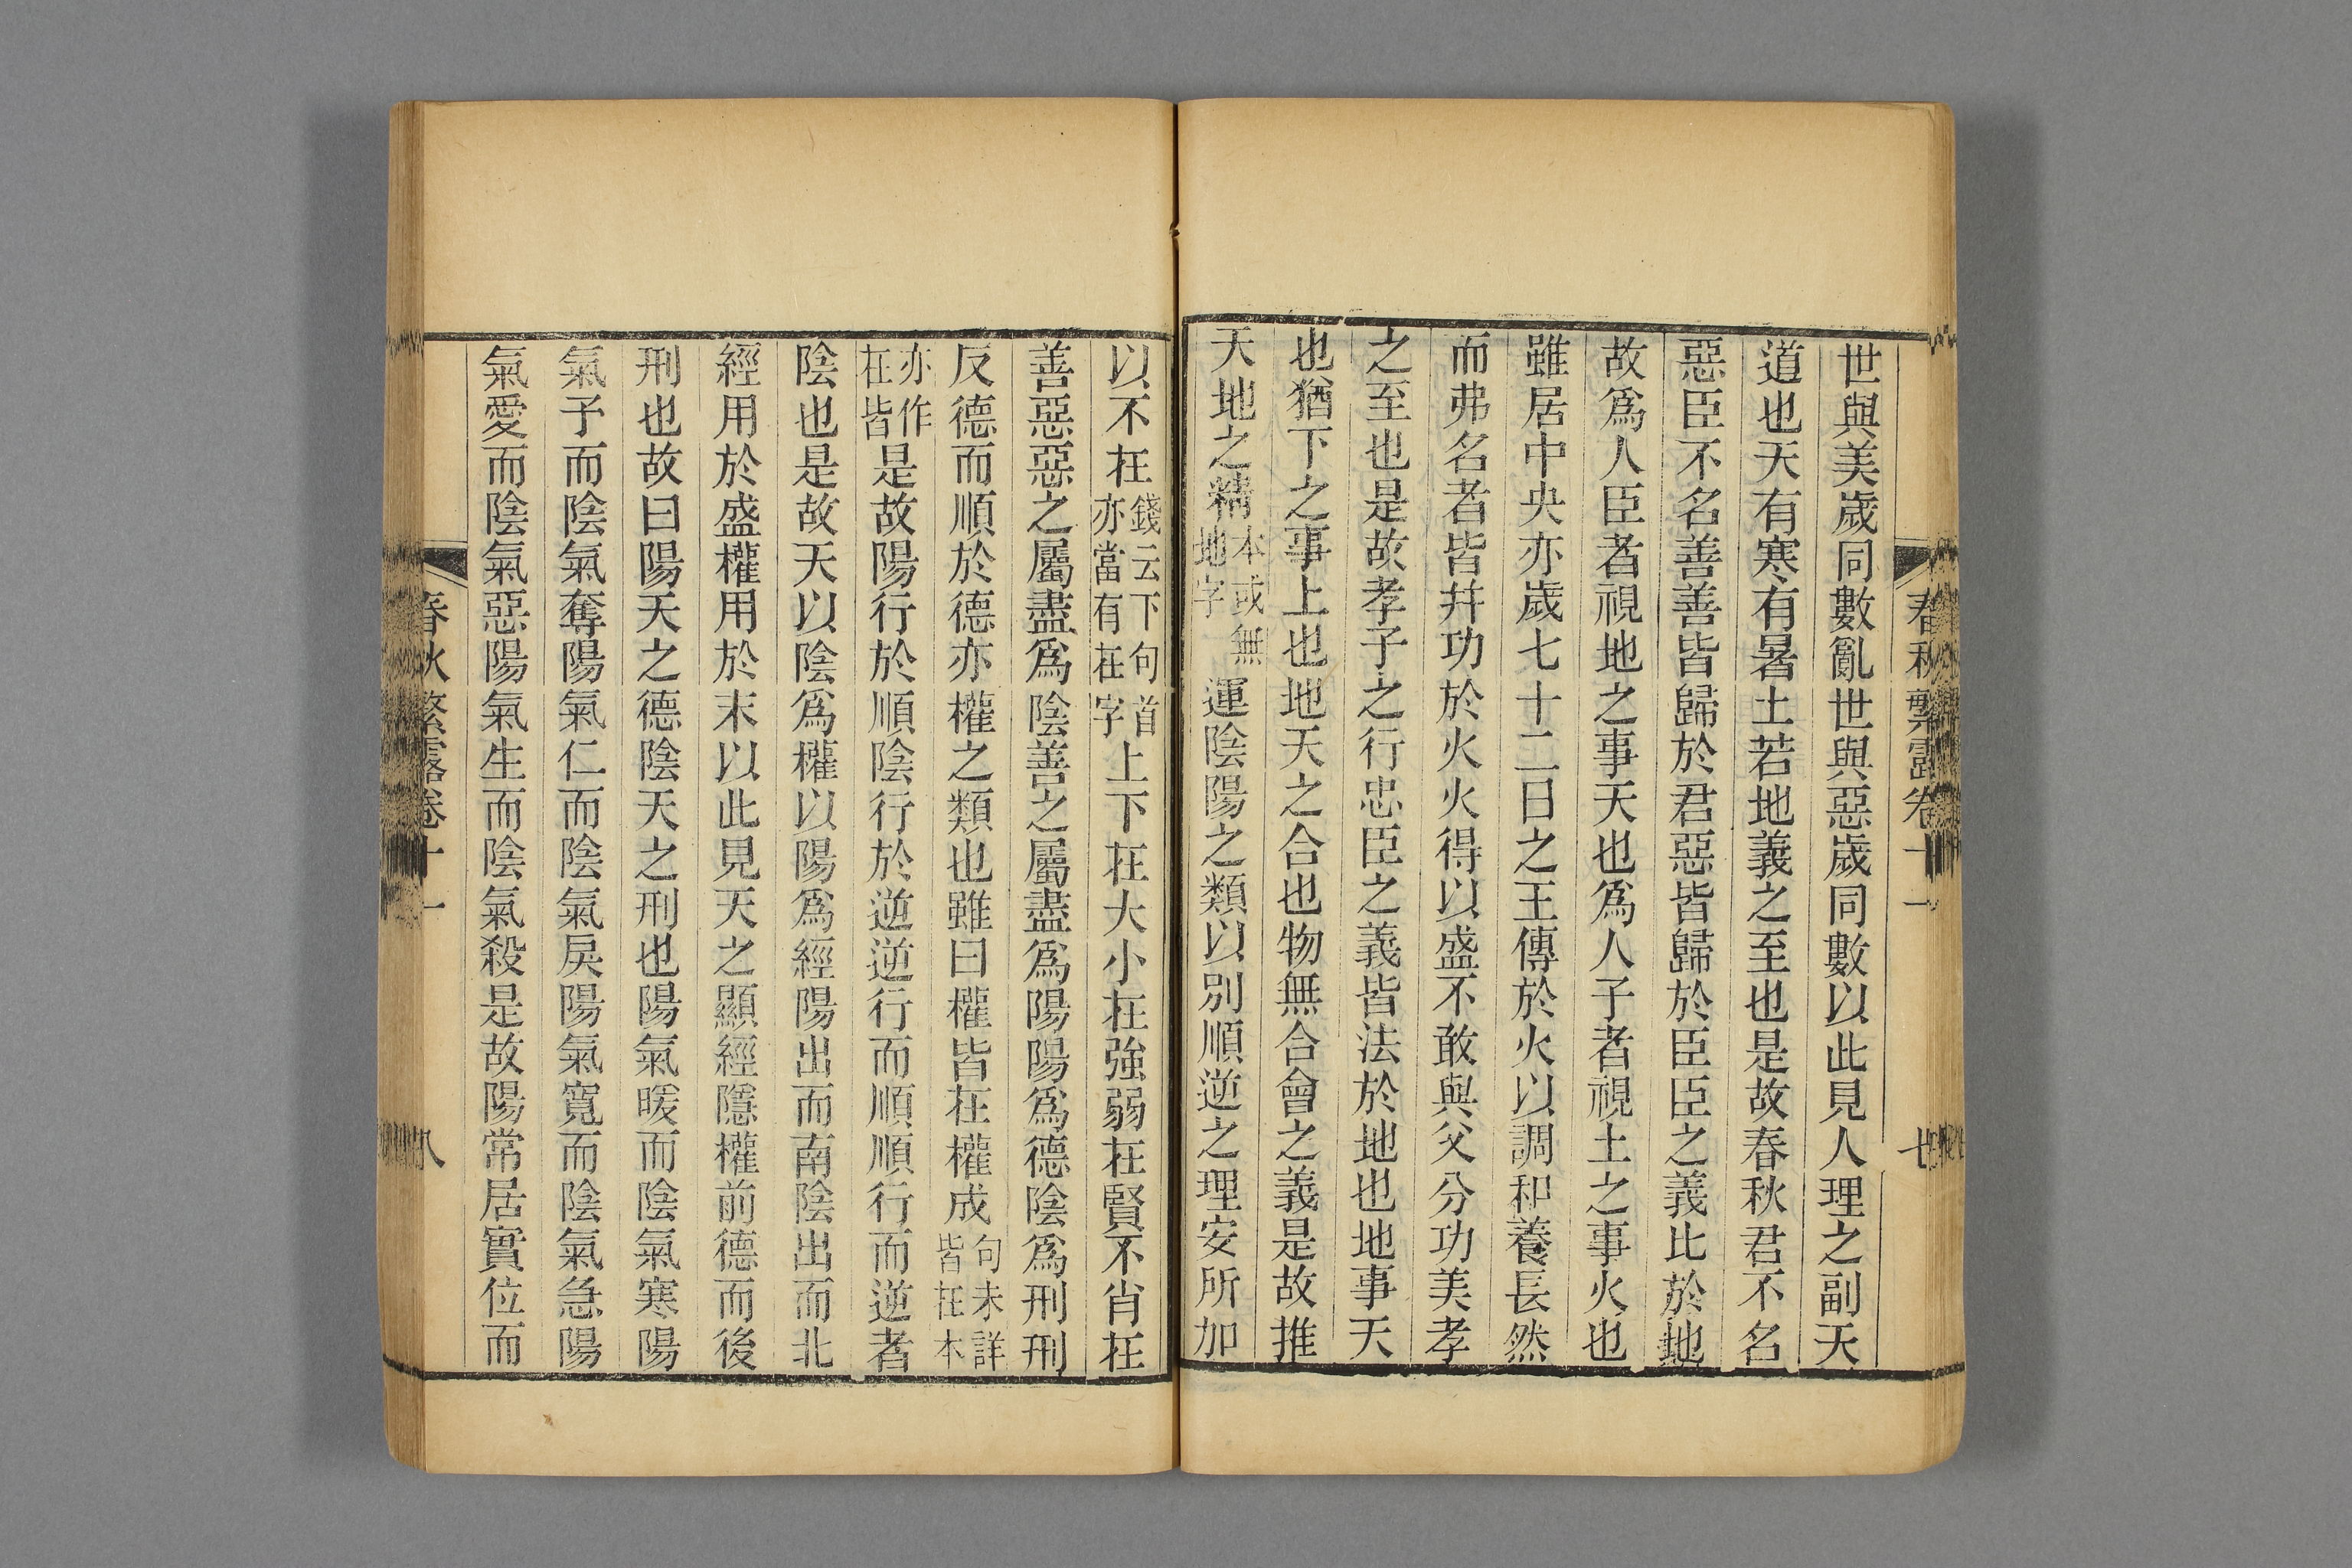 春秋繁露卷十一 七
世與美歲同數亂世與惡歲同數以此見人理之副天
道也天有寒有暑土若地義之至也是故春秋君不名
惡臣不名善善皆歸於君惡皆歸於臣臣之義比於地
故爲人臣者視地之事天也爲人子者視土之事火也
雖居中央亦歲七十二日之王傳於火以調和養長然
而弗名者皆幷功於火火得以盛不敢與父分功美孝
之至也是故孝子之行忠臣之義皆法於地也地事天
也猶下之事上也地天之合也物無合會之義是故推
天地之精本或無地字運陰陽之類以別順逆之理安所加
以不在錢云下句首亦當有在字上下在大小在強弱在賢不肖在
善惡惡之屬盡爲陰善之屬盡爲陽陽爲德陰爲刑刑
反德而順於德亦權之類也雖曰權皆在權成句未詳皆在本
亦作在皆是故陽行於順陰行於逆逆行而順順行而逆者
陰也是故天以陰爲權以陽爲經陽出而南陰出而北
經用於盛權用於末以此見天之顯經隱權前德而後
刑也故曰陽天之德陰天之刑也陽氣暖而陰氣寒陽
氣予而陰氣奪陽氣仁而陰氣戾陽氣寬而陰氣急陽
氣愛而陰氣惡陽氣生而陰氣殺是故陽常居實位而
春秋繁露卷十一 八